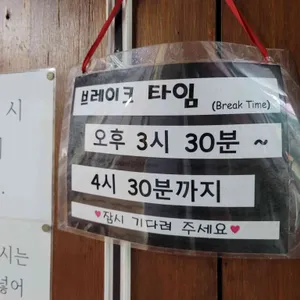 브레이크 타임 (Break Time)
오후 3시 30분 ~
4시 30분까지
♥잠시 기다려 주세요♥
시
시는
넣어